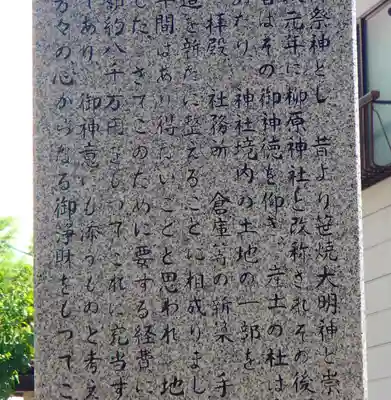 祭神とし 昔より笹焼大明神と崇
元年に柳原神社と改称されその後
皆はその御神徳を仰ぎ 産土の社は
あたり、神社境内の土地の一部を
拝殿 社務所 倉庫等の新築 手
造を新たに整えることに相成りまし
年間はあり得ないことと思われ 地
した。さてこのために要する経費に
額約八千万円をもってこれに充当す
であり、御神意にも添うものと考え
方々の心からなる御浄財をもってこ